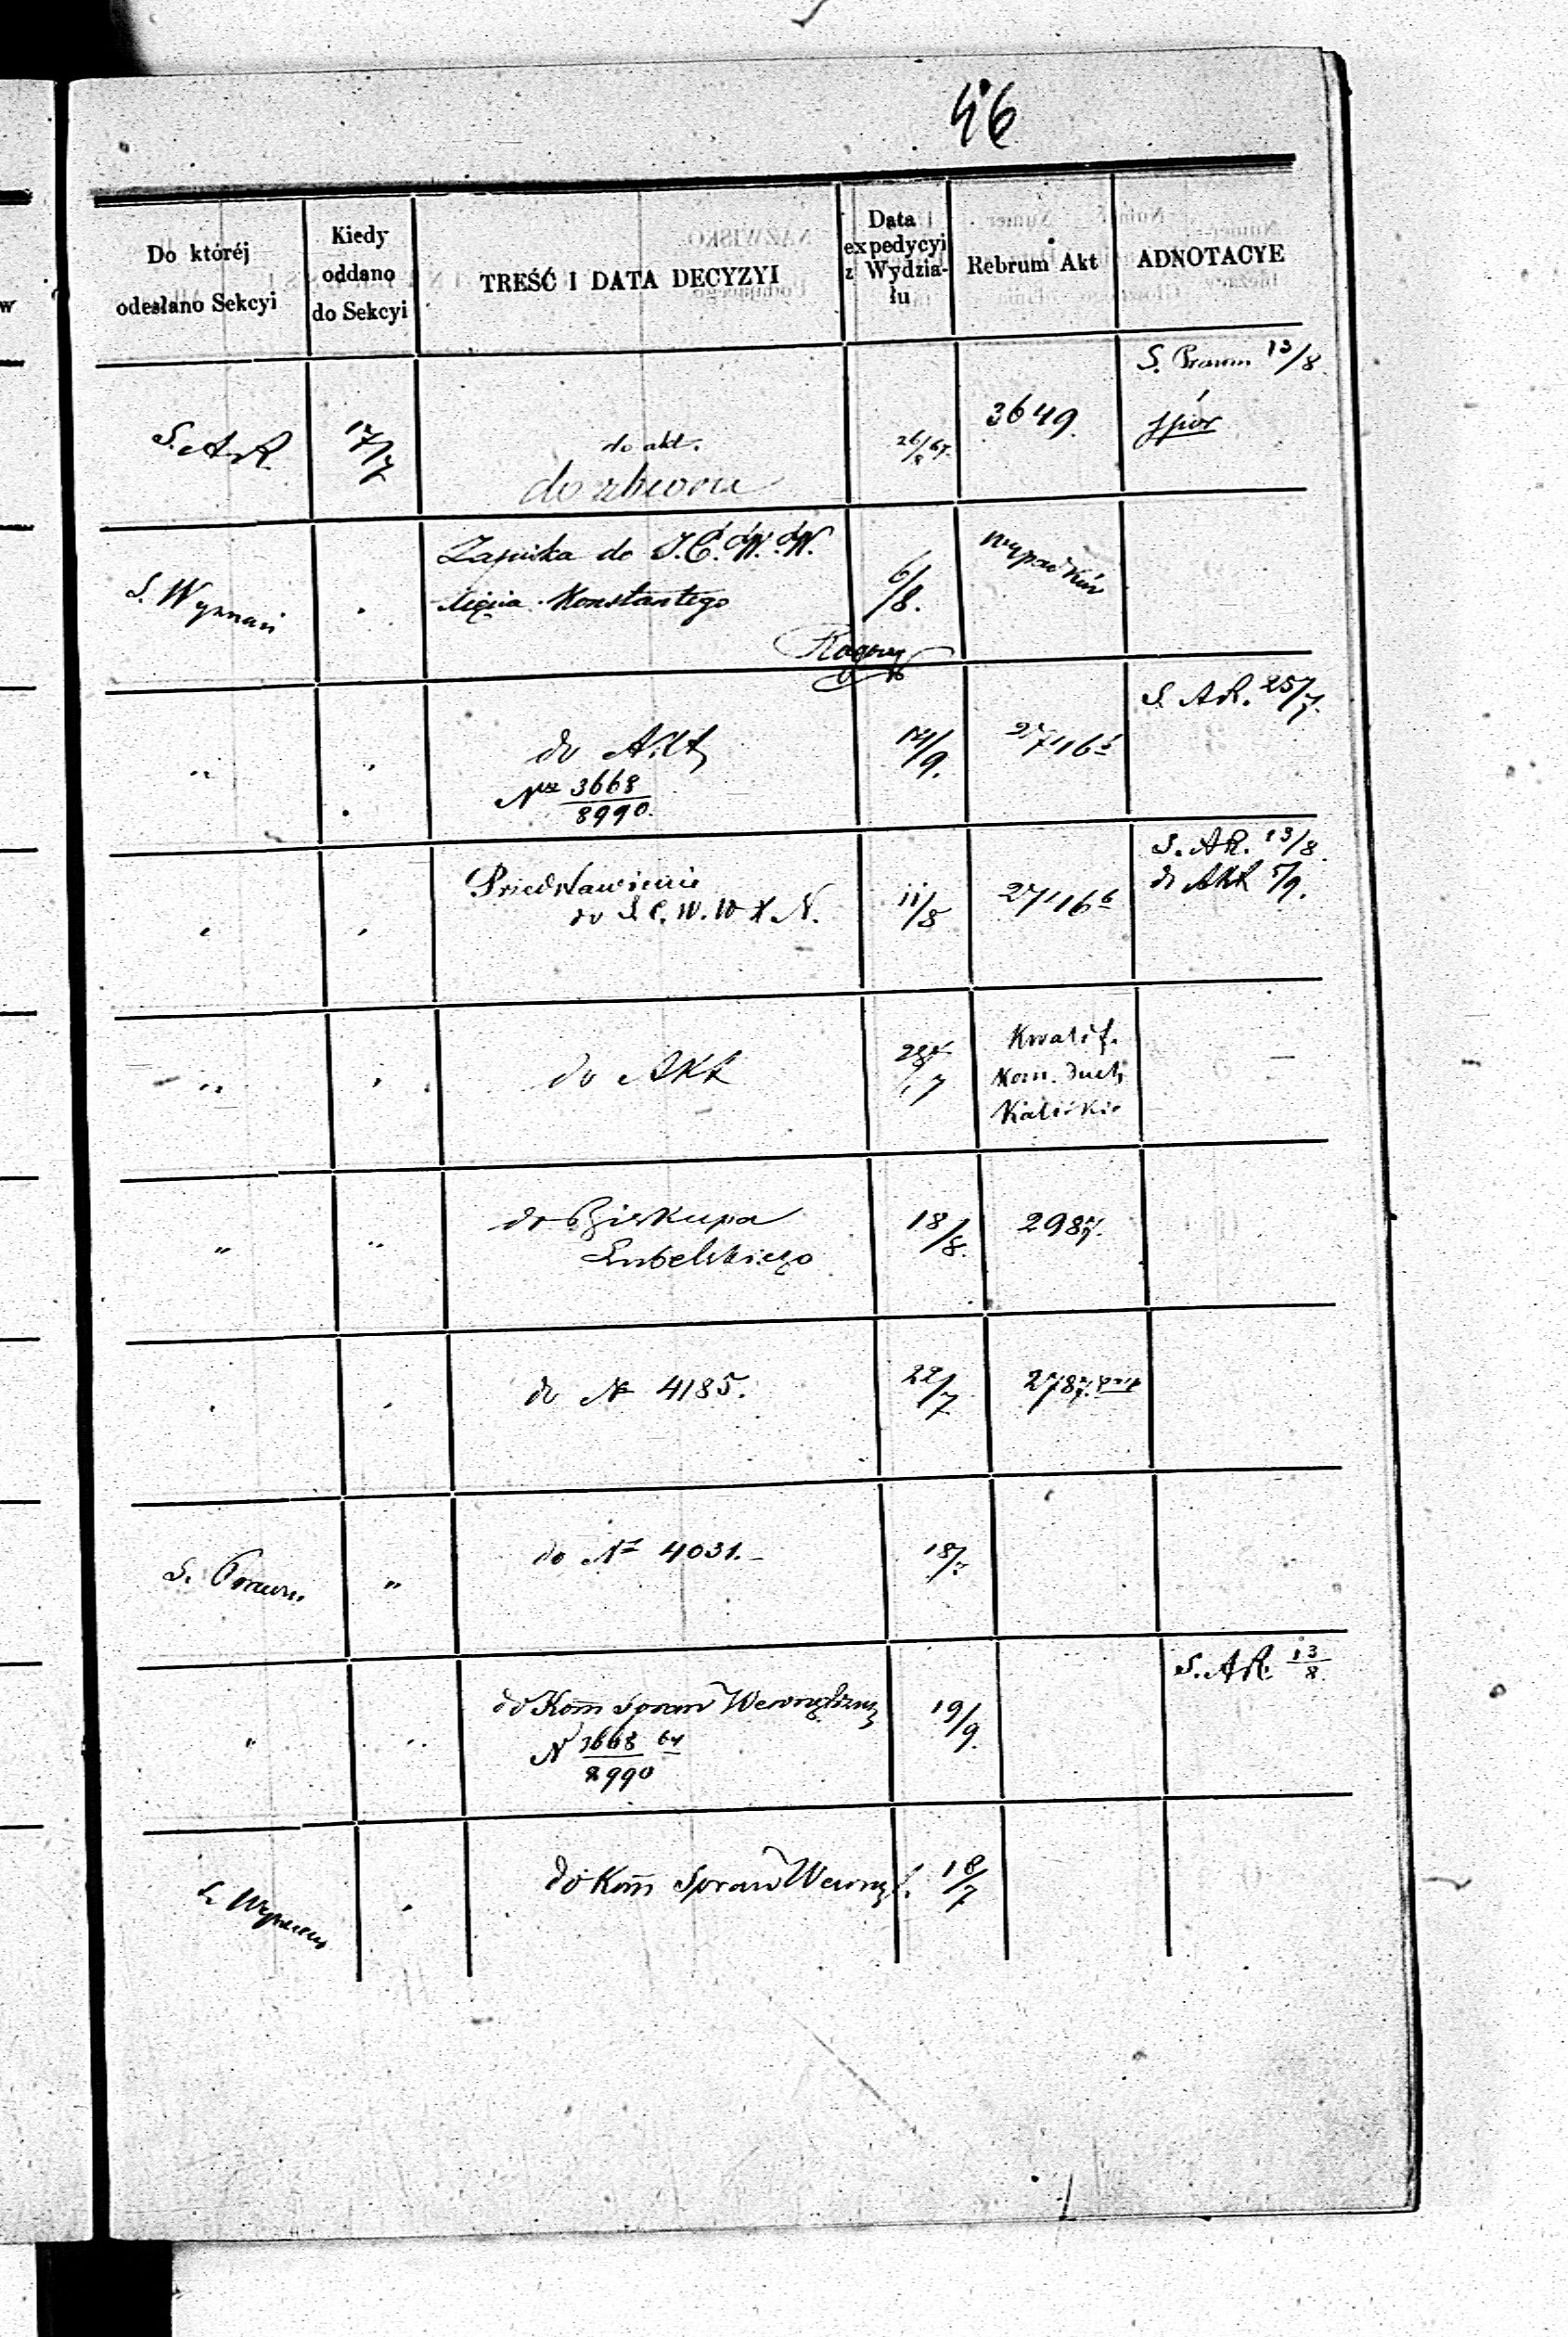 46
Do któréj odesłano Sekcyi
Kiedy oddano do Sekcyi
TREŚĆ I DATA DECYZYI
Data expedycyi z Wydziału
Rebrum Akt
ADNOTACYE
S. AR. 17/7 do akt. 26/8 64. 3649. S. Prawn 13/8
do zbioru spór
S. Wyznań Zapiska do J. C. W. W.
Xięcia Konstantego 6/8. wypadków
do Akt 14/9. 2746 S. AR. 25/7.
№ 3668/8990.
Przedstawienie 11/8 2746 6 S. AR. 13/8.
do J. C. W. W X N. do Akt 5/9.
" do AKt /7 Kwalif.
Kom. duch
Kaliskie
" " do Biskupa 18/8. 2987.
Lubelskiego
do № 4185. 22/7 2787.
S. Prawn. " do № 4031. 18/7
" " do Kom Spraw Wewnętrzny 19/9. S. AR. 13/8
N 3668/8990 64
S. Wyznań do Kom Spraw Wewnęt. 18/7